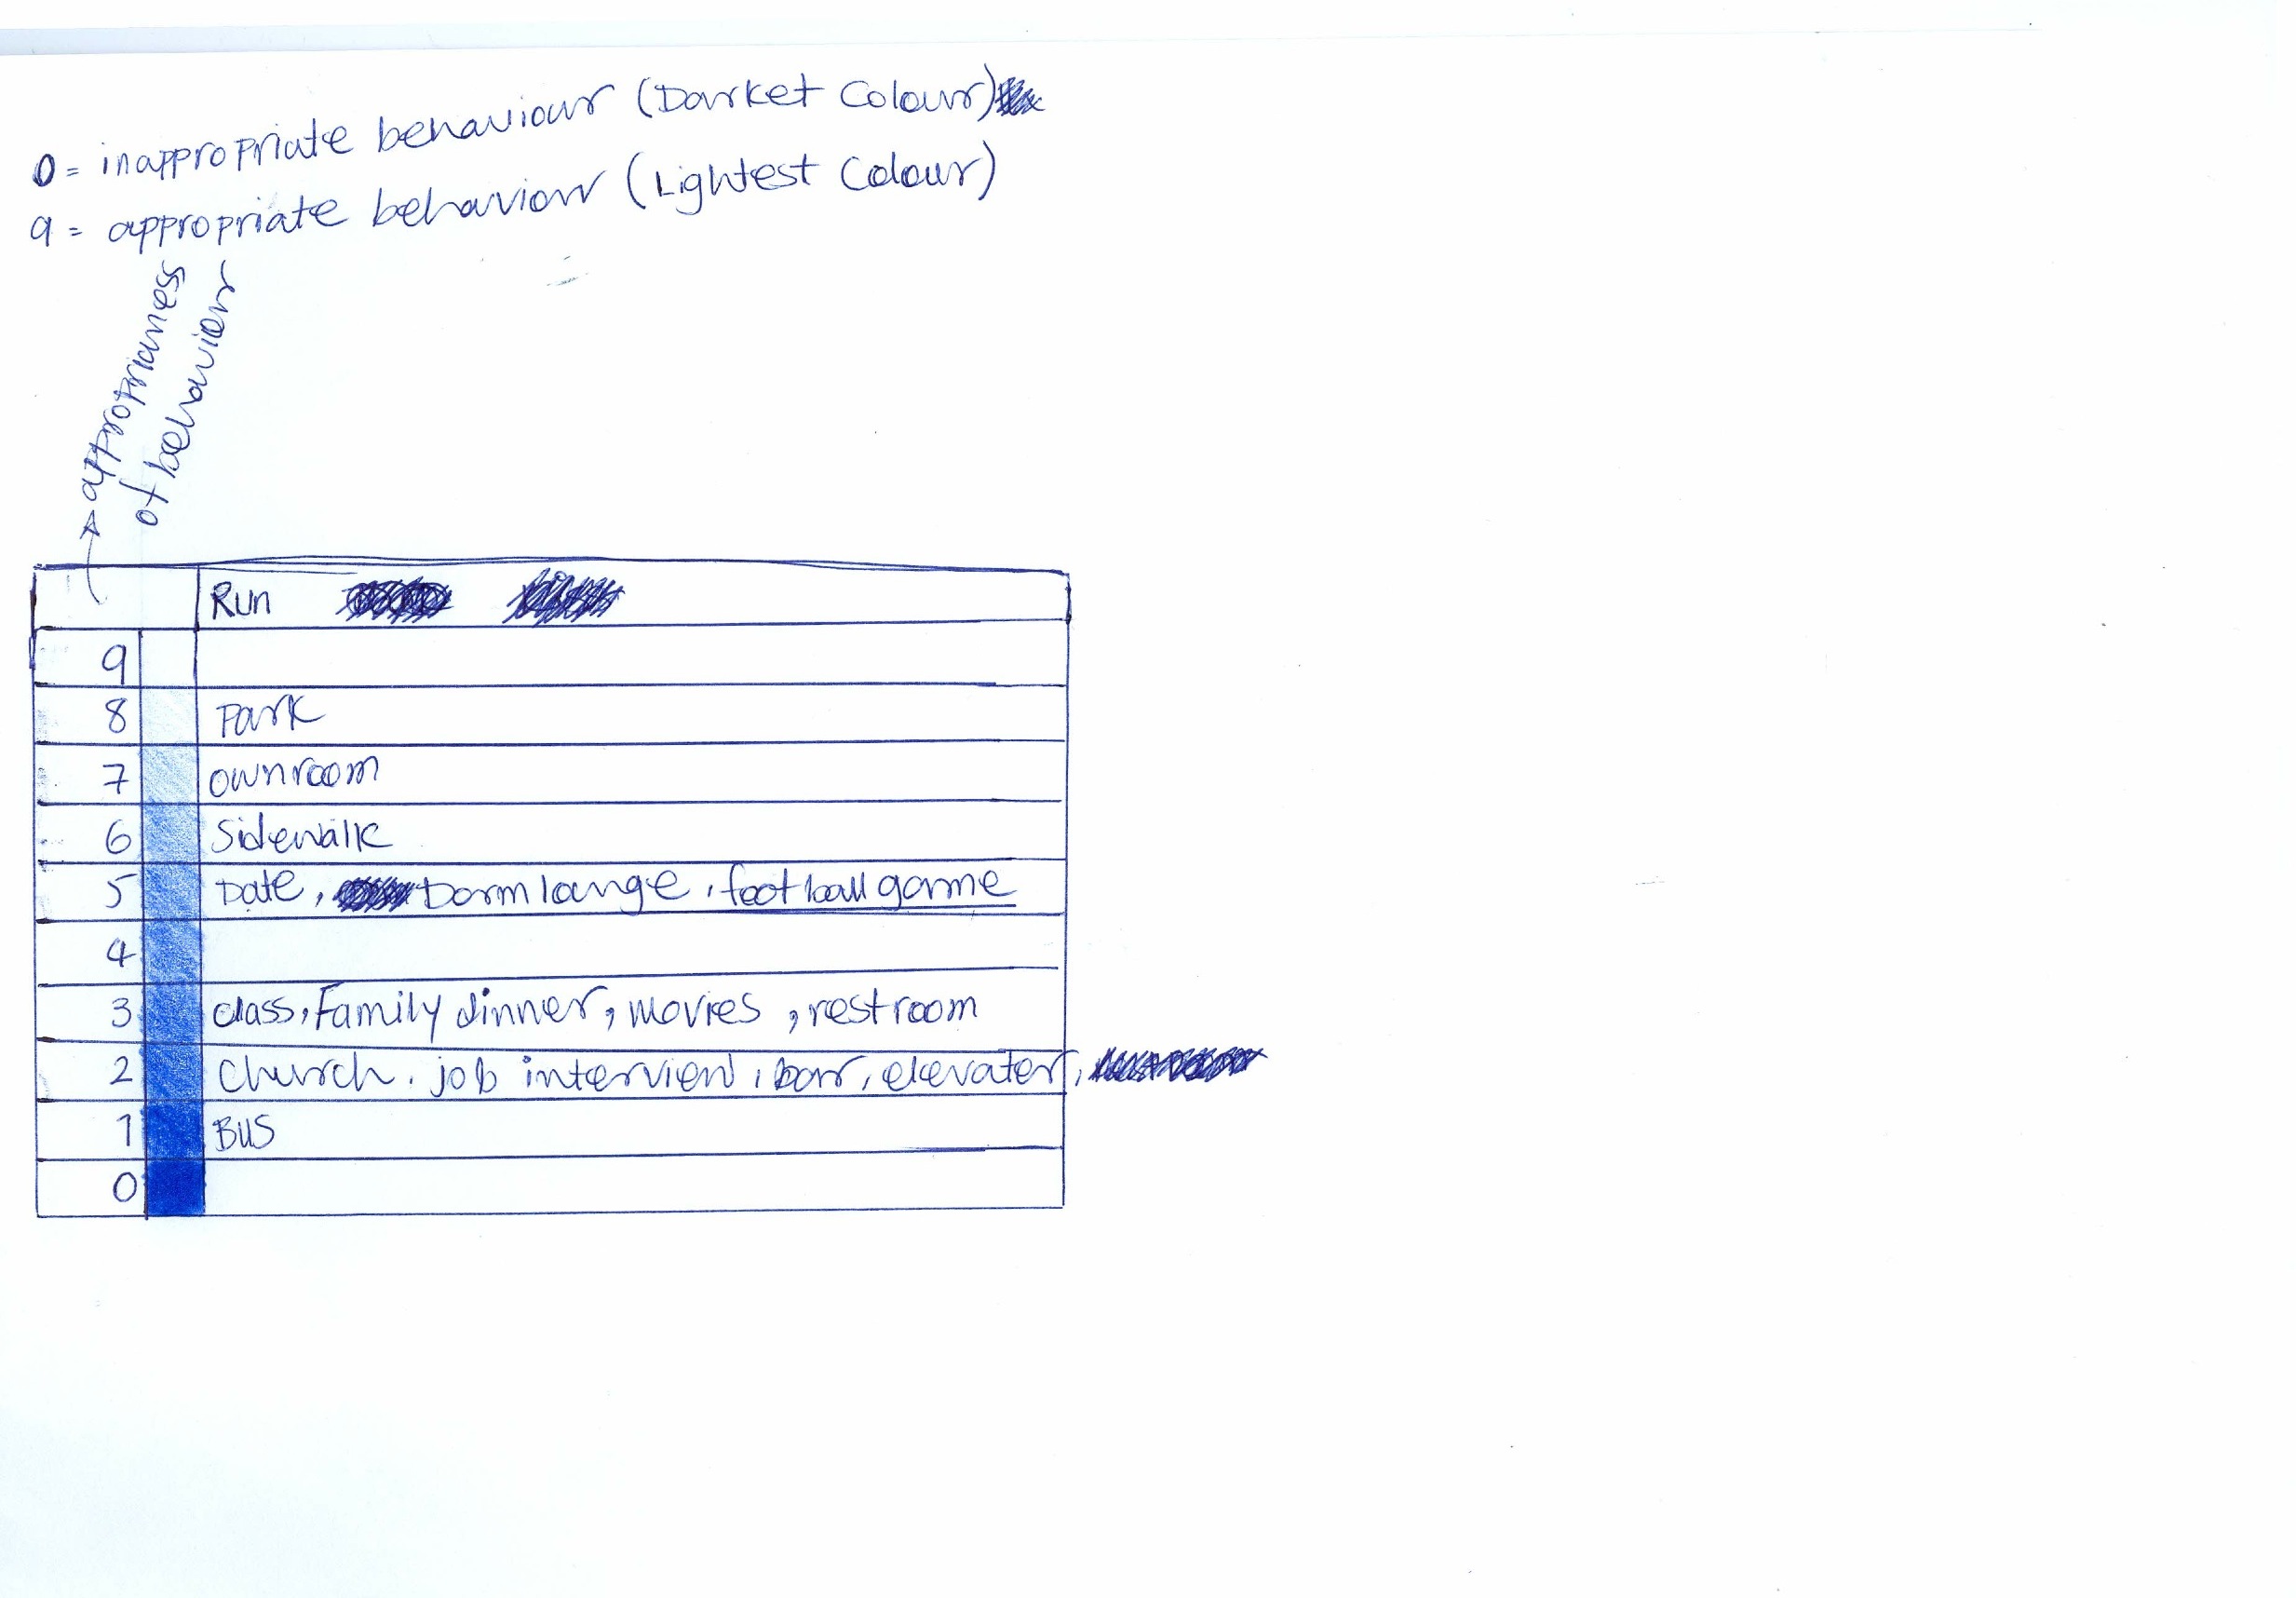 0 = inappropriate behaviour (Darket Colour)
9 = appropriate behaviour (Lightest Colour)
appropriarness
of behaviour
Run
9
8 Park
7 ownroom
6 Sidewalk
5 Date, Dorm lounge, football game
4
3 class, Family dinner, movies, restroom
2 Church. job interview, bar, elevater,
1 BUS
0